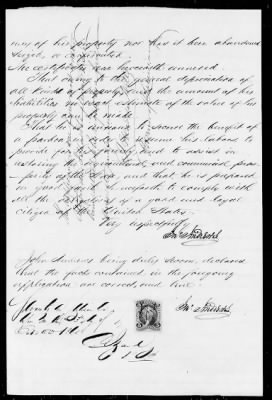 any of his property nor has it been abandoned
seized, or confiscated.
No certificates are herewith annexed.
That owing to the general depreciation of
all kinds of property and the amount of his
liabilities no exact estimate of the value of his
property can be made.
That he is anxious to secure the benefit of
a pardon in order to resume his labors to
provide for his family and to assist in
restoring the agricultural and commercial pros-
perity of the State, and that he is prepared
in good faith henceforth to comply with
all the obligations of a good and loyal
citizen of the United States.
Very respectfully
Jno. Andrews
John Andrews being duly sworn, declares
that the facts contained in the foregoing
application are correct, and true.
Jno. Andrews